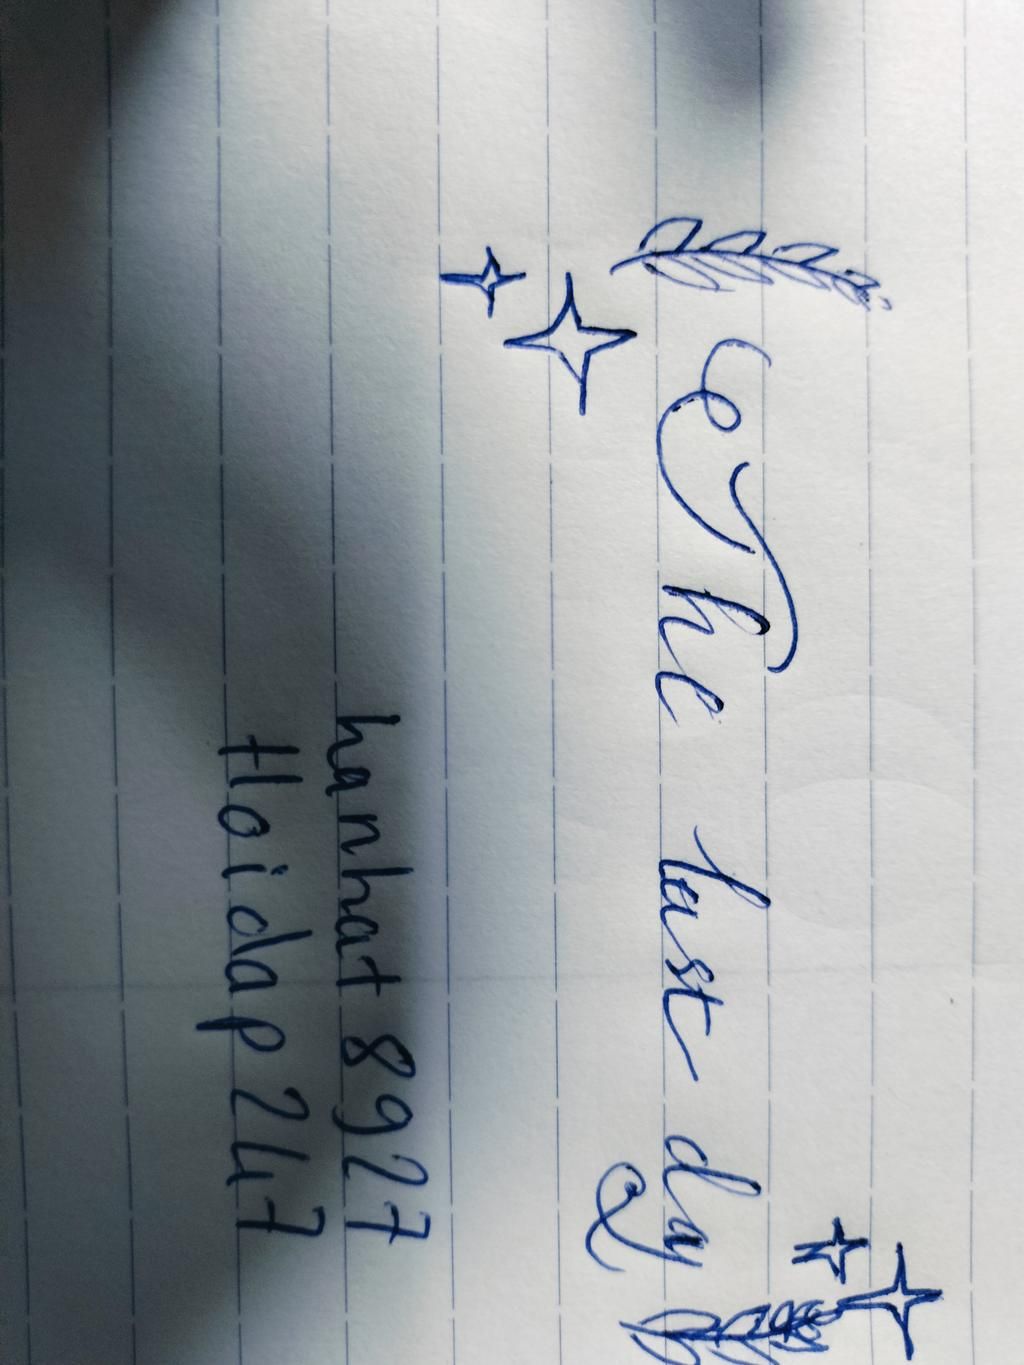 The last day
hanhat 8927
Hoidap 247